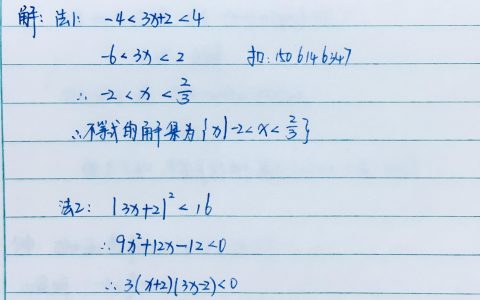 解：法1： -4<3x+2<4
-6<3x<2 扣：1506146347
∴ -2<x<2/3
∴不等式的解集为{x|-2<x<2/3}
法2： |3x+2|²<16
∴ 9x²+12x-12<0
∴ 3(x+2)(3x-2)<0